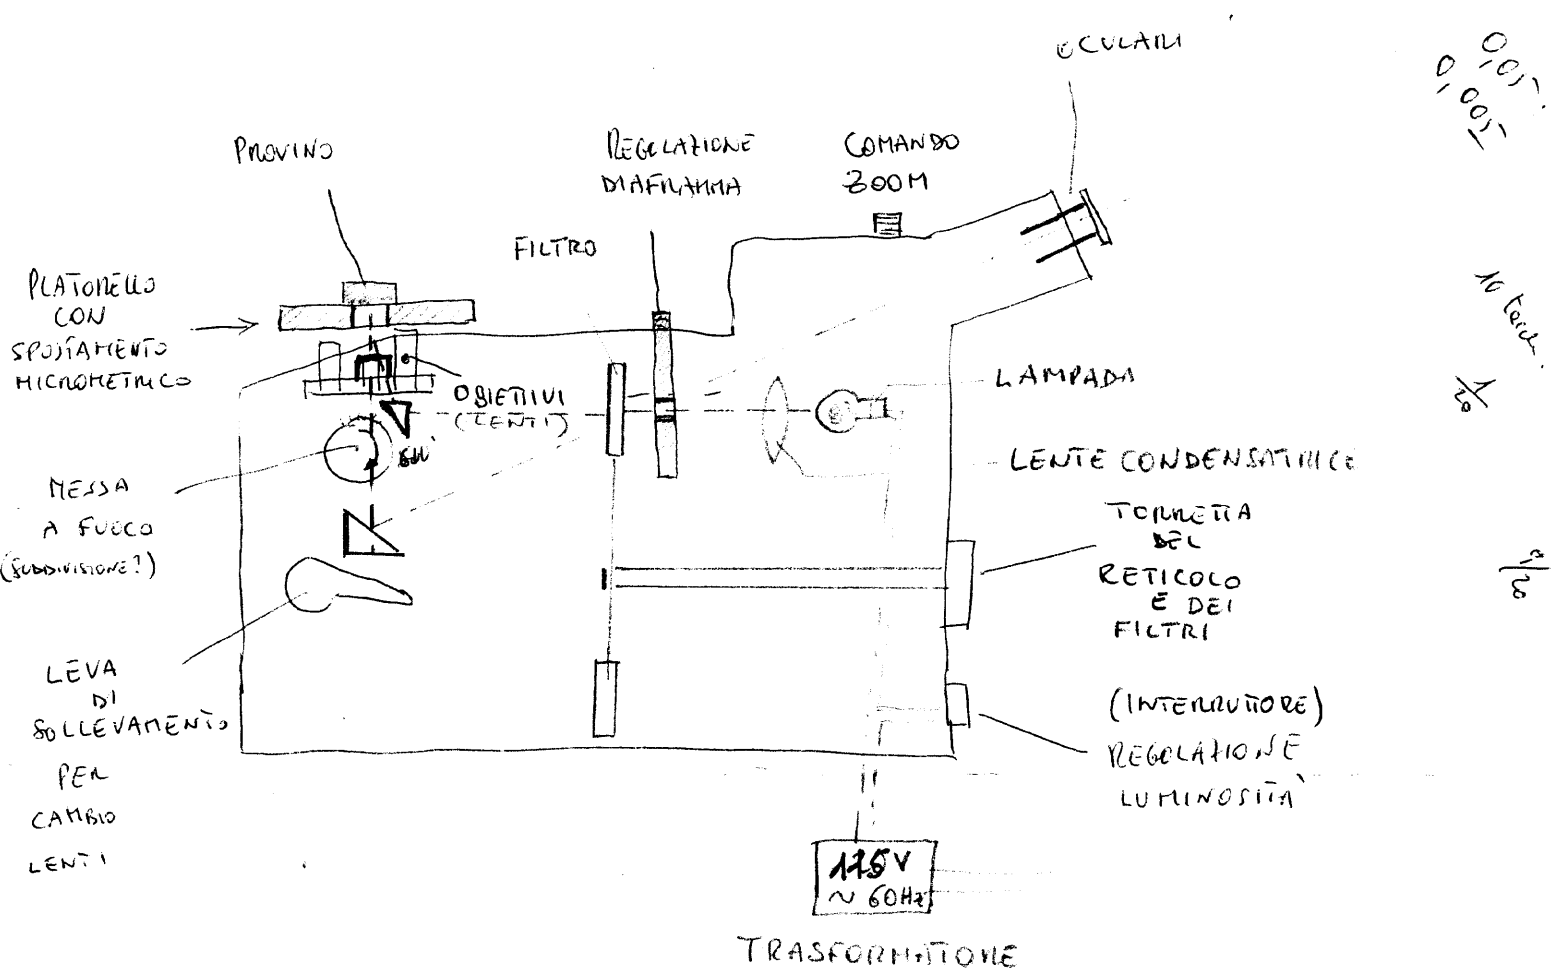 OCULARI
0,05
0,005
PROVINO
REGOLAZIONE
DIAFRAMMA
COMANDO
ZOOM
FILTRO
PLATORELLO
CON
SPOSTAMENTO
MICROMETRICO
OBIETTIVI
(LENTI)
LAMPADA
LENTE CONDENSATRICE
MESSA
A FUOCO
(SUDDIVISIONE?)
TORRETTA
DEL
RETICOLO
E DEI
FILTRI
LEVA
DI
SOLLEVAMENTO
PER
CAMBIO
LENTI
(INTERRUTTORE)
REGOLAZIONE
LUMINOSITÀ
~ 60Hz
TRASFORMATORE
10
1/20